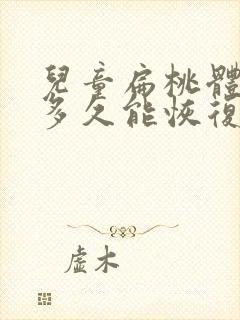 兒童扁桃體
多久能恢復
虛木